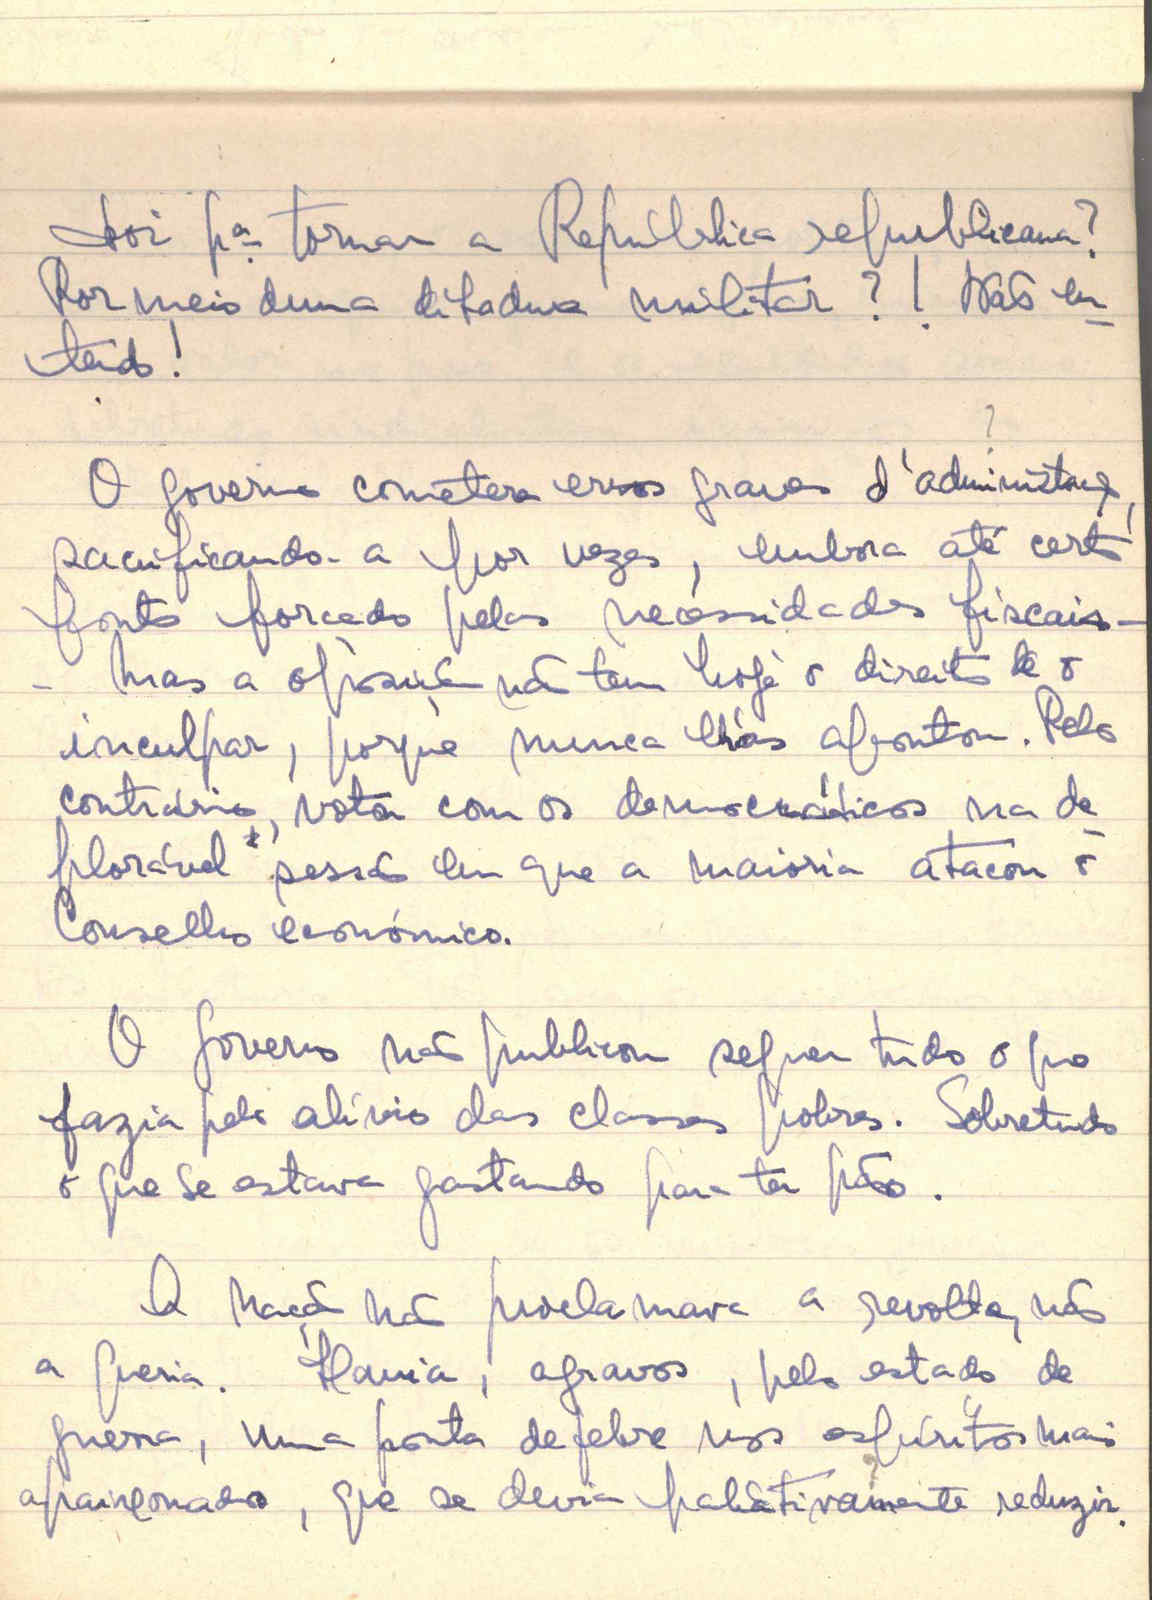 Foi pª tornar a República republicana?
Por meio duma ditadura militar?! Não en-
tendo!
?
O governo cometera erros graves d'administração,
sacrificando-a por vezes, embora até certo
ponto forçado pelas necessidades fiscais -
- mas a oposição não tem hoje o direito de o
inculpar, porque nunca lhos apontou. Pelo
contrário, votou com os democráticos na de-
plorável * sessão em que a maioria atacou o
Conselho económico.
O governo não publicou sequer tudo o que
fazia pelo alívio das classes pobres. Sobretudo
o que se estava gastando para ter pão.
A nação não proclamava a revolta, não
a queria. Havia, agravos, pelo estado de
guerra, uma ponta de febre nos espíritos mais
apaixonados, que se devia paliativamente reduzir.